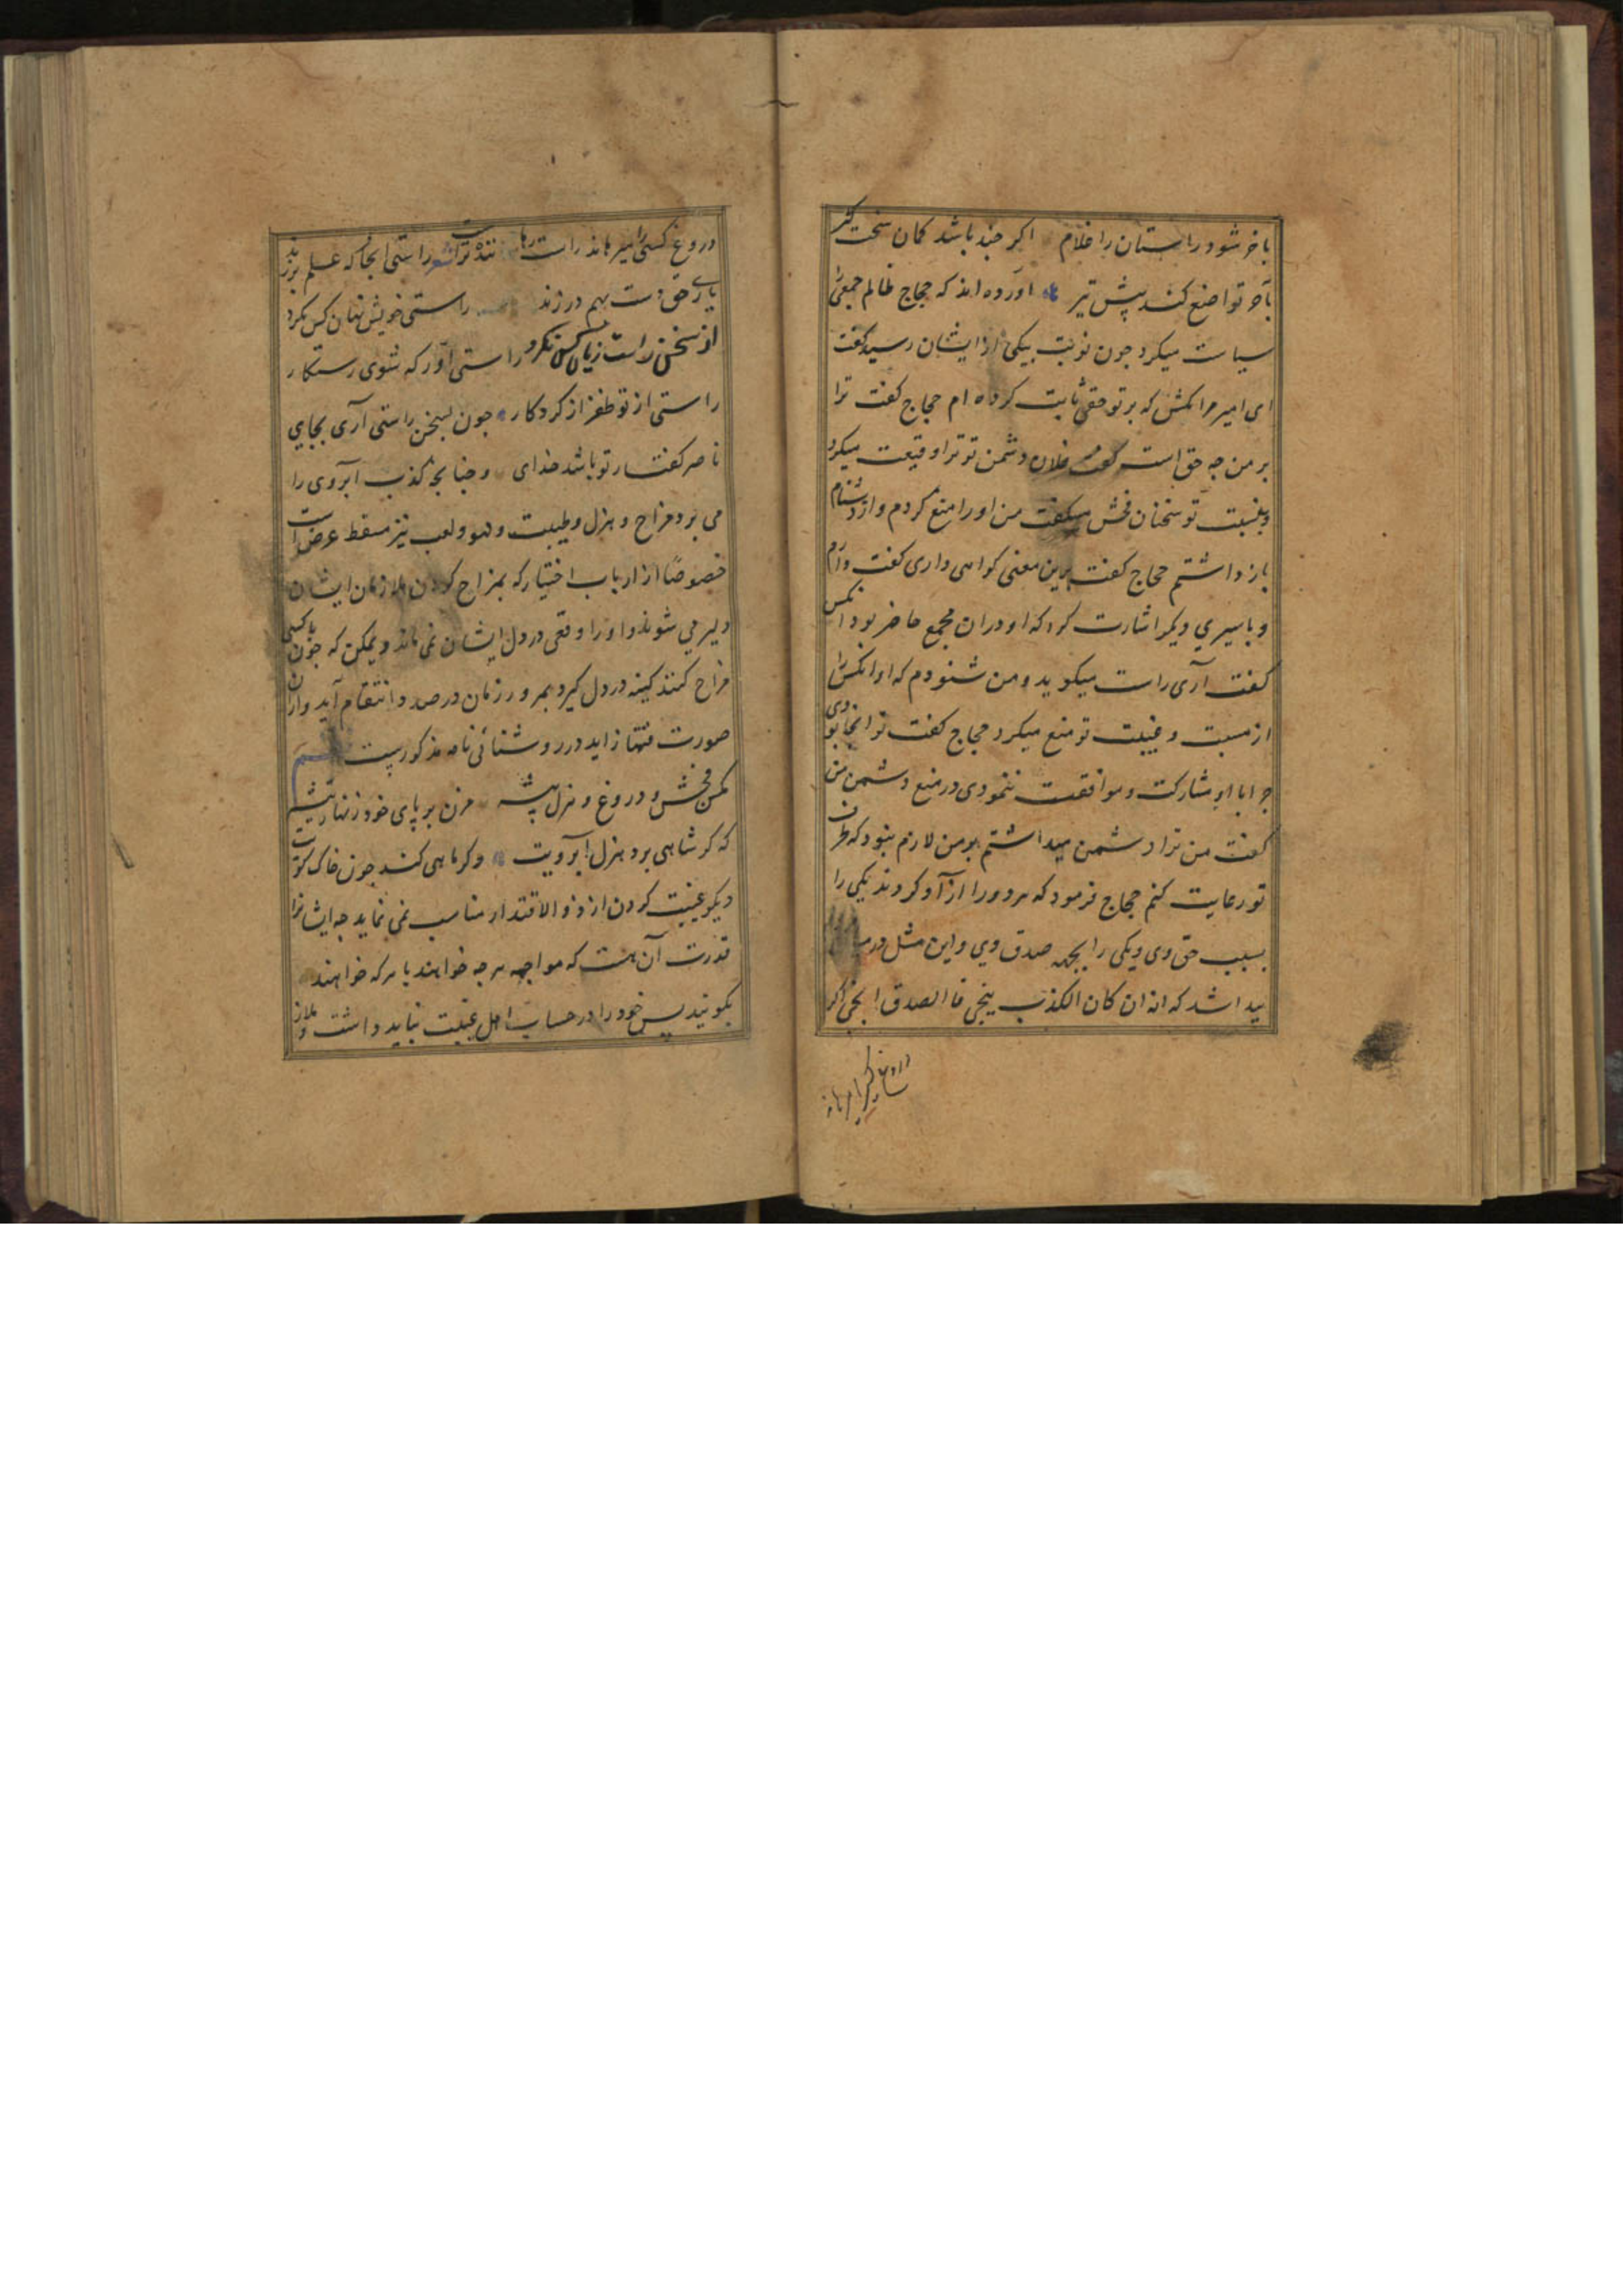 باخر شود راستان را غلام اکر جند باشد کمان سخت کیر
بآخر تواضع کند پیش تیر اورده اند که حجاج ظالم جمعی را
سیاست میکرد جون نوبت بیکی از ایشان رسید کفت
ای امیر مرا مکش که بر تو حقی ثابت کرده ام حجاج کفت ترا
بر من جه حق است کفت فلان دشمن تو ترا وقیعت میکرد
و بنسبت تو سخنان فحش میکفت من او را منع کردم و از دشنام
باز داشتم حجاج کفت برین معنی کواهی داری کفت دارم
و باسیری دیکر اشارت کرد که او دران مجمع حاضر بود انکس
کفت آری راست میکوید و من شنودم که او انکس را
از مسبت و غیبت تو منع میکرد حجاج کفت تو انجا بودی
جرا با او مشارکت و موافقت ننمودی در منع دشمن من
کفت من ترا دشمن میداشتم بر من لازم نبود که طرف
تو رعایت کنم حجاج فرمود که هر دو را ازاد کردند یکی را
بسبب حق وی و یکی را بجهه صدق وی و این مثل در
بید اشد که انه ان کان الکذب ینجی فا الصدق انجی اکر
دروغ کسی را میرهاند
دروغ کسی را میرهاند راست رهاننده تراست شعر راستی انجا که علم برزند
یاری حق دست بهم درزند راستی خویش نهان کس نکرد
از سخن راست زیان کس نکرد راستی آور که شوی رستکار
راستی از تو ظفر از کردکار جون بسخن راستی آری بجای
ناصر کفتار تو باشد خدای و جنانجه کذب آبروی را
می برد مزاح و هزل و طیبت و لهو و لعب نیز مسقط عرض است
خصوصًا از ارباب اختیار که بمزاح کردن ملازمان ایشان
دلیر می شوند و او را وقعی در دل ایشان نمی ماند و یمکن که جون با کسی
مزاح کنند کینه در دل کیرد بمرور زمان در صدد انتقام آید و ازان
صورت فتنها زاید در روشنائی نامه مذکورست
مکن فحش و دروغ و هزل پیشه مزن بر پای خود زنهار تیشه
که کر شاهی برد هزل ابرویت و کر ماهی کند جون خاک کویت
دیکر غیبت کردن از ذو الاقتدار مناسب نمی نماید جه ایشانرا
قدرت آن هست که مواجهه هر جه خواهند با هر که خواهند
بکویند پس خود را در حساب اهل غیبت نباید داشت و ملاز